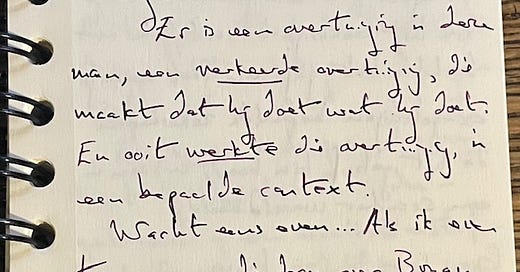 Er is een overtuiging in deze
man, een verkeerde overtuiging, die
maakt dat hij doet wat hij doet.
En ooit werkte die overtuiging, in
een bepaalde context.
Wacht eens even... Als ik even